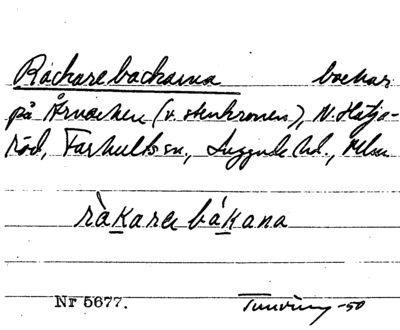 Råckarebackarna backar
på Årnacken (v. stenkronen), N. Hatja-
röd, Farhults sn, Luggude hd., Mlm
ràkara bákana
Nr 5677. Tunving -50